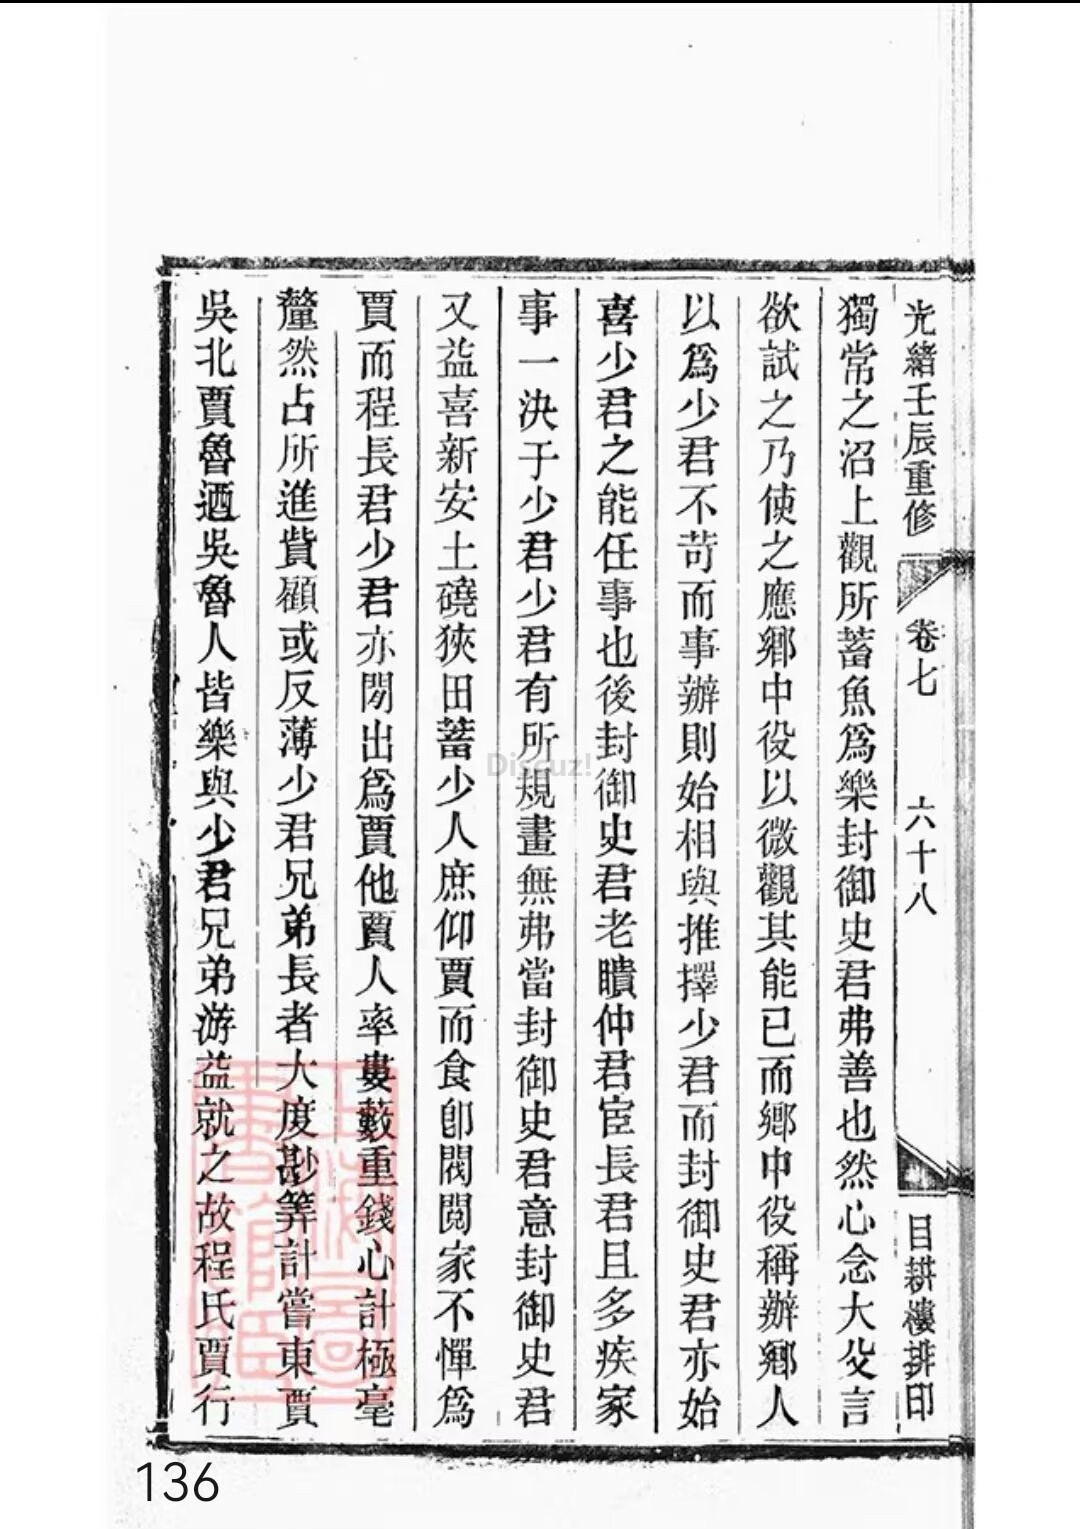 光緒壬辰重修 卷七 六十八 目耕樓排印
獨常之沼上觀所蓄魚爲樂封御史君弗善也然心念大父言
欲試之乃使之應鄉中役以微觀其能已而鄉中役稱辦鄉人
以爲少君不苛而事辦則始相與推擇少君而封御史君亦始
喜少君之能任事也後封御史君老瞶仲君宦長君且多疾家
事一決于少君少君有所規畫無弗當封御史君意封御史君
又益喜新安土磽狹田蓄少人庶仰賈而食卽閥閱家不憚爲
賈而程長君少君亦閒出爲賈他賈人率婁藪重錢心計極毫
釐然占所進貲顧或反薄少君兄弟長者大度尠筭計嘗東賈
吳北賈魯迺吳魯人皆樂與少君兄弟游益就之故程氏賈行
Discuz!
上海圖
書館藏
136